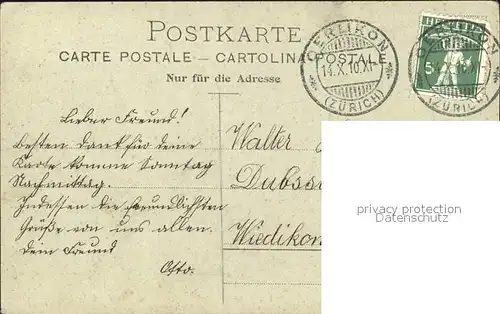 POSTKARTE
CARTE POSTALE — CARTOLINA POSTALE
Nur für die Adresse
OERLIKON
14.X.10.XI
(ZÜRICH)
HELVETIA
5
(ZÜRICH)
Lieber Freund!
besten Dank für deine
Karte komme Sonntag
Nachmittag.
Indessen die freundlichsten
Grüße von uns allen.
dein Freund
Otto.
Walter
Wiedikon
privacy protection
Datenschutz